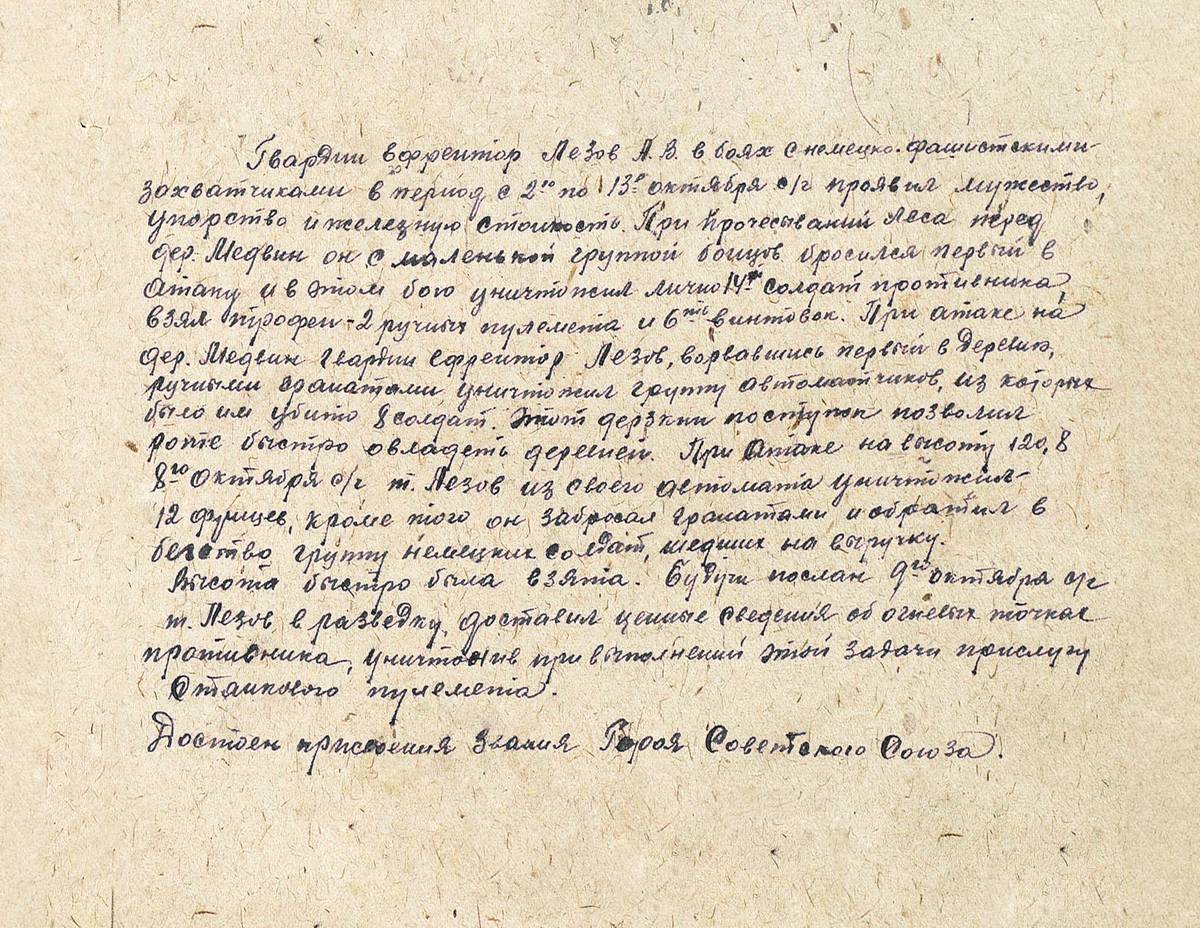 Гвардии ефрейтор Лезов А.В. в боях с немецко-фашистскими
захватчиками в период с 2го по 13е октября с/г проявил мужество,
упорство и железную стойкость. При прочесывании леса перед
дер. Медвин он с маленькой группой бойцов бросился первый в
атаку и в этом бою уничтожил лично 14ть солдат противника,
взял трофеи - 2 ручных пулемета и 6ть винтовок. При атаке на
дер. Медвин гвардии ефрейтор Лезов, ворвавшись первый в деревню,
ручными гранатами уничтожил группу автоматчиков, из которых
было им убито 8 солдат. Этот дерзкий поступок позволил
роте быстро овладеть деревней. При атаке на высоту 120,8
8го октября с/г т. Лезов из своего автомата уничтожил
12 фрицев, кроме того он забросал гранатами и обратил в
бегство группу немецких солдат, шедших на выручку.
Высота быстро была взята. Будучи послан 9го октября с/г
т. Лезов в разведку, доставил ценные сведения об огневых точках
противника, уничтожив при выполнений этой задачи прислугу
станкового пулемета.
Достоен присвоения звания Героя Советского Союза.